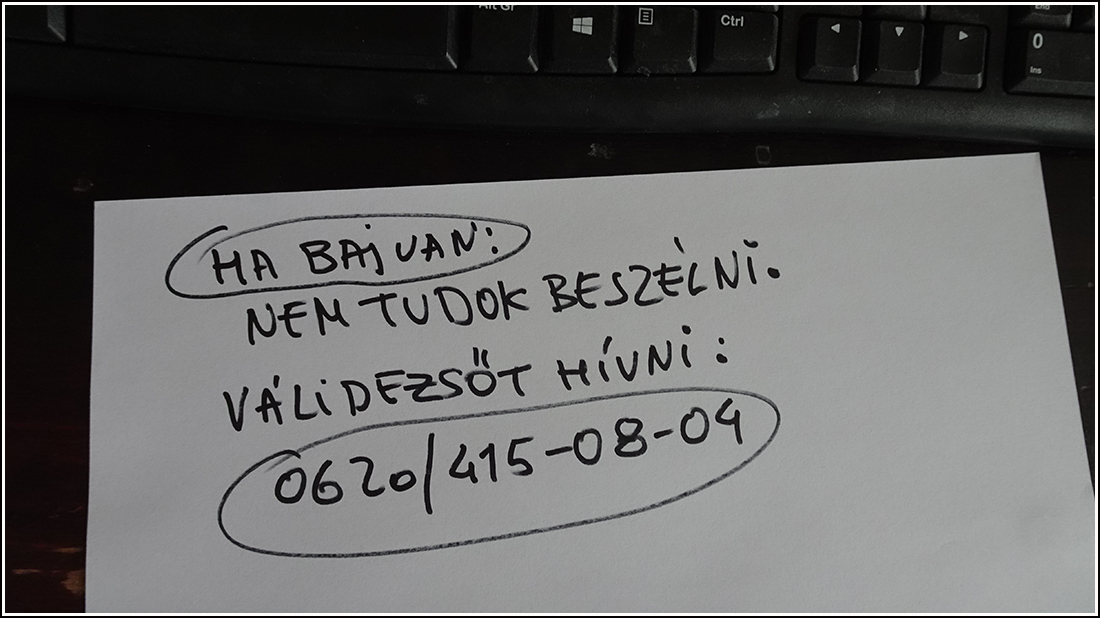 Alt Gr
Ctrl
End
0
Ins
HA BAJ VAN:
NEM TUDOK BESZÉLNI.
VÁLI DEZSŐT HÍVNI:
0620/415-08-04